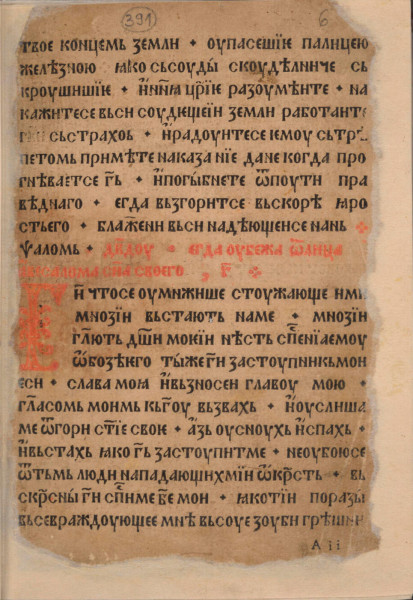 391
6
твое конꙿцемь земли · оупасешїıе палицею
желѣзною ꙗко сьсоуды скоудѣлниче сь
кроушишїе · и҆нн҃ꙗ цр҃їе разоумѣите · на
кажитесе вьси соудещеїи земли работаите
сьстрахоь · и҆радоуитесе ıемоу сьтре
петомь примѣте наказанїе дане когда про
гнѣваетсе г҃ь · и҆погыбнете ѿпоути пра
вѣднаго · егда вьзгоритсе вьскорѣ ꙗро
стьего · блажени вьси надѣющенсе нань
ѱаломь · дв҃доу · егда оубѣжа ѿлица
сна своего · г҃
Г҃и чтосе оумножише стоужающе ми
мнозїи вьстають наме · мнозїи
гл҃ють дш҃и моıеи нѣсть сп҃енїаıемоу
ѡбозѣıего тыже г҃и застоупникьмои
еси · слава моꙗ и҆вьзносеи главоу мою ·
гласомь моимь кьг҃оу вьзвахь · и҆оуслиша
ме ѿгори ст҃їе своıе · азь оусноухь и҆спахь ·
и҆вьстахь ꙗко г҃ь застоупитме · неоубоюсе
ѿтьмь люди нападающихмїи ѡкр҃сть · вь
скр҃сны г҃и сп҃име б҃е мои · ꙗкотїи порази
вьсевраждоующее мнѣ вьсоуе зоуби грѣшни
А іі